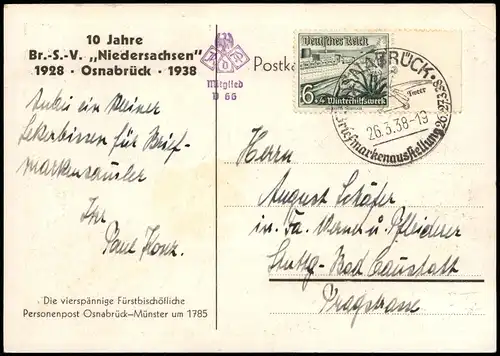 10 Jahre
Br.-S.-V. „Niedersachsen"
1928 · Osnabrück · 1938
Mitglied
D 66
Postka
Deutsches Reich
6+4 Winterhilfswerk
OSNABRÜCK
26.3.38-19
Briefmarkenausstellung 26.27.3.38
Anbei ein kleiner
Leckerbissen für Brief-
markensammler
Ihr
Paul
Herrn
August Schäfer
in Fa. Werner u. Pfleiderer
Stuttg.-Bad Cannstatt
Pragstrasse
Die vierspännige Fürstbischöfliche
Personenpost Osnabrück–Münster um 1785